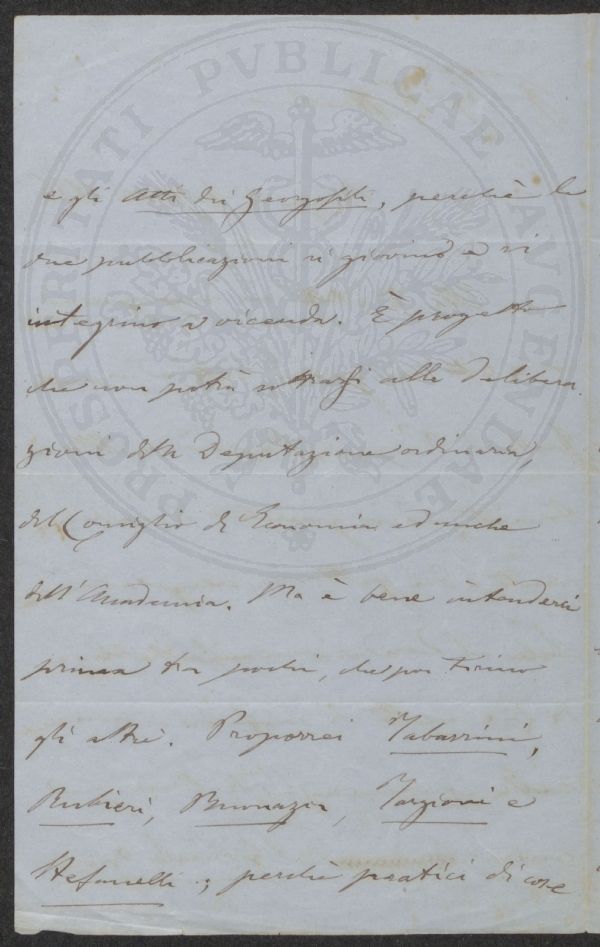 PROSPERITATI PVBLICAE AVGENDAE
e gli Atti dei Georgofili, perchè le
due pubblicazioni si giovino e si
integrino a vicenda. È progetto
che non potrà sottrarsi alle delibera
zioni della Deputazione ordinaria,
del Consiglio di Economia ed anche
dell'Accademia. Ma è bene intenderci
prima tra pochi, che poi tirino
gli altri. Proporrei Tabarrini,
Rubieri, Buonazia, Targioni e
Stefanelli; perchè pratici di cose